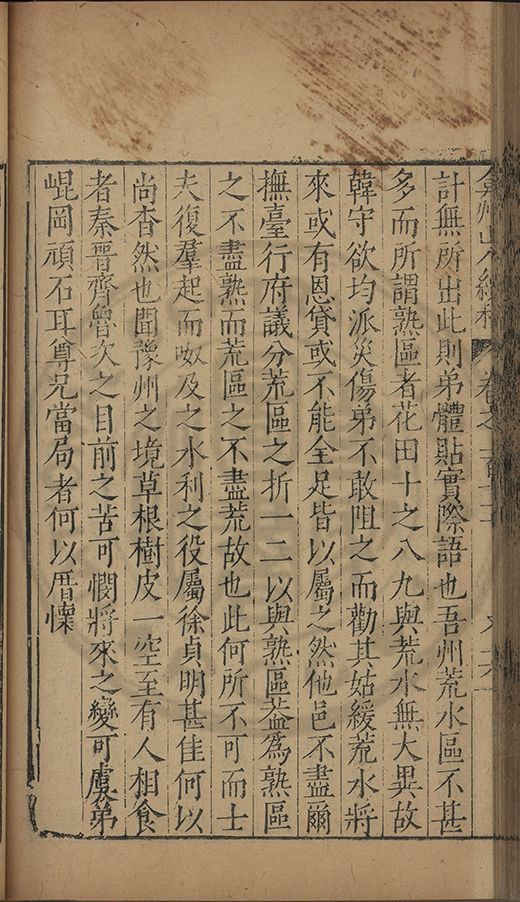 弇州山人續稿 卷之一百
計無所出此則弟體貼實際語也吾州荒水區不甚
多而所謂熟區者花田十之八九與荒水無大異故
韓守欲均派災傷弟不敢阻之而勸其姑緩荒水將
來或有恩貸或不能全足皆以屬之然他邑不盡爾
撫臺行府議分荒區之折一二以與熟區葢爲熟區
之不盡熟而荒區之不盡荒故也此何所不可而士
夫復羣起而呶及之水利之役屬徐貞明甚佳何以
尚杳然也聞豫州之境草根樹皮一空至有人相食
者秦晉齊魯次之目前之苦可憫將來之變可虞弟
崐岡頑石耳尊兄當局者何以厝懷